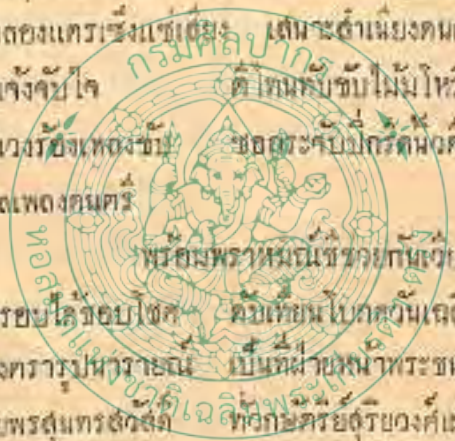 ลองแตรเซ็งแซ่เสียง เสนาะสำเนียงดน
แจ้งจับใจ ตีโทนทับขับไม้มโห
วงร้องเพลงขับ ซอกระจับปี่
เพลงดนตรี
พร้อมพราหมณ์ชีช่วยกันเวีย
รอบได้ชอบโชค ดับเทียนโบกควันเฉลิ
ตรารูปนารายณ์ เป็นที่ฝ่ายหน้าพระ
พรสุนทรสวัสดิ์ กษัตริย์สุริยวงศ์
กรมศิลปากร
หอสมุดแห่งชาติเฉลิมพระเกียรติ